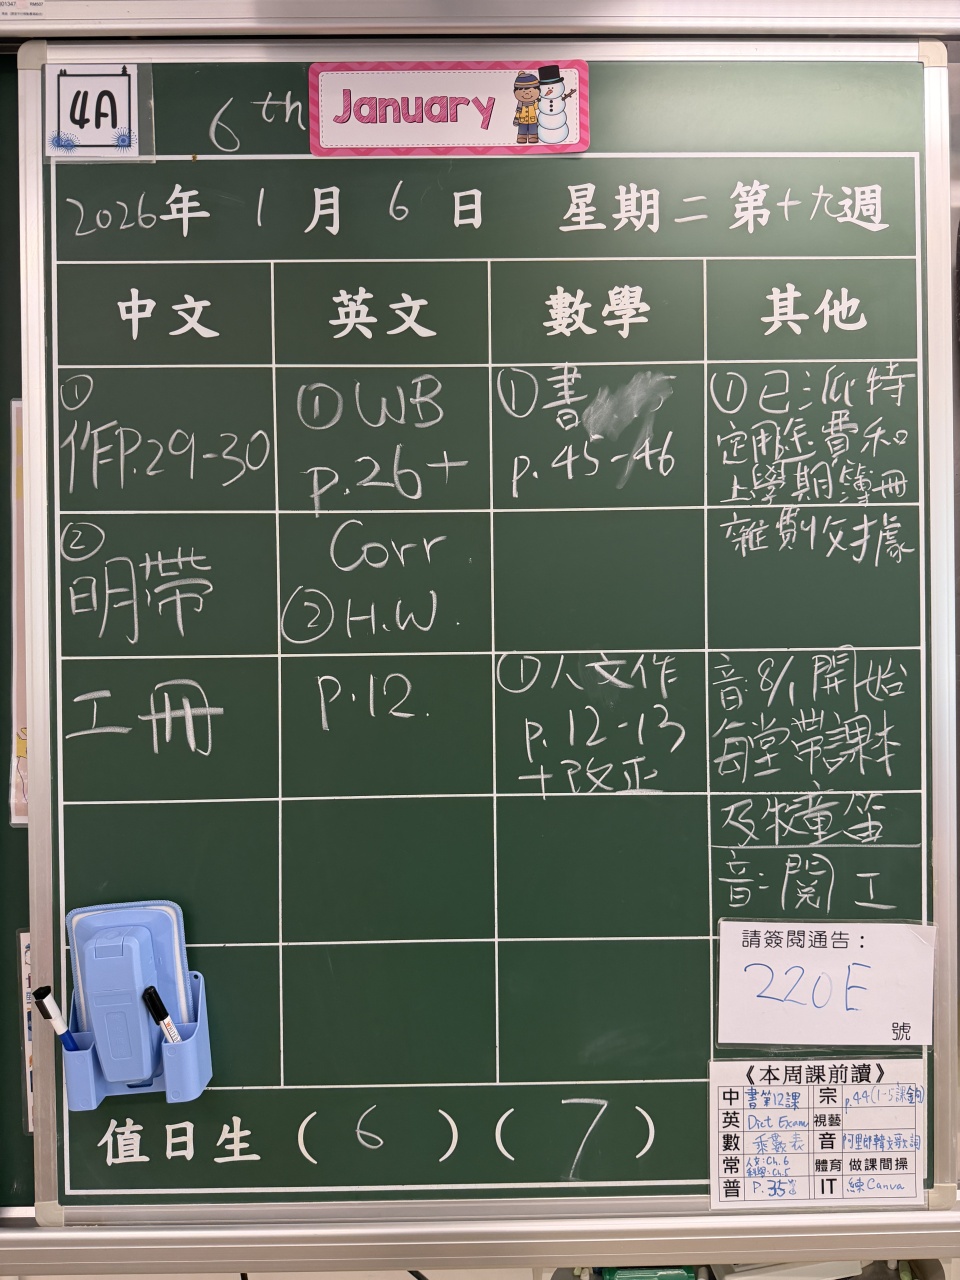 4A
6th
January
2026年 1 月 6 日 星期二 第十九週
中文
英文
數學
其他
①
作P.29-30
②
明帶
工冊
① WB
p.26+
Corr
② H.W.
p.12.
① 書
p.45-46
① 人文作
p.12-13
+改正
① 已派特
定用途費和
上學期簿冊
雜費收據
音:8/1開始
每堂帶課本
及牧童笛
音:閱工
請簽閱通告:
220E
號
《本周課前讀》
中 書第12課 宗 p.44(1-5課金句)
英 Dict Exam 視藝
數 乘數表 音 阿里郎韓文歌詞
常 人文:Ch.6
科學:Ch.5
體育 做課間操
普 P.35 IT 練Canva
值日生 ( 6 ) ( 7 )